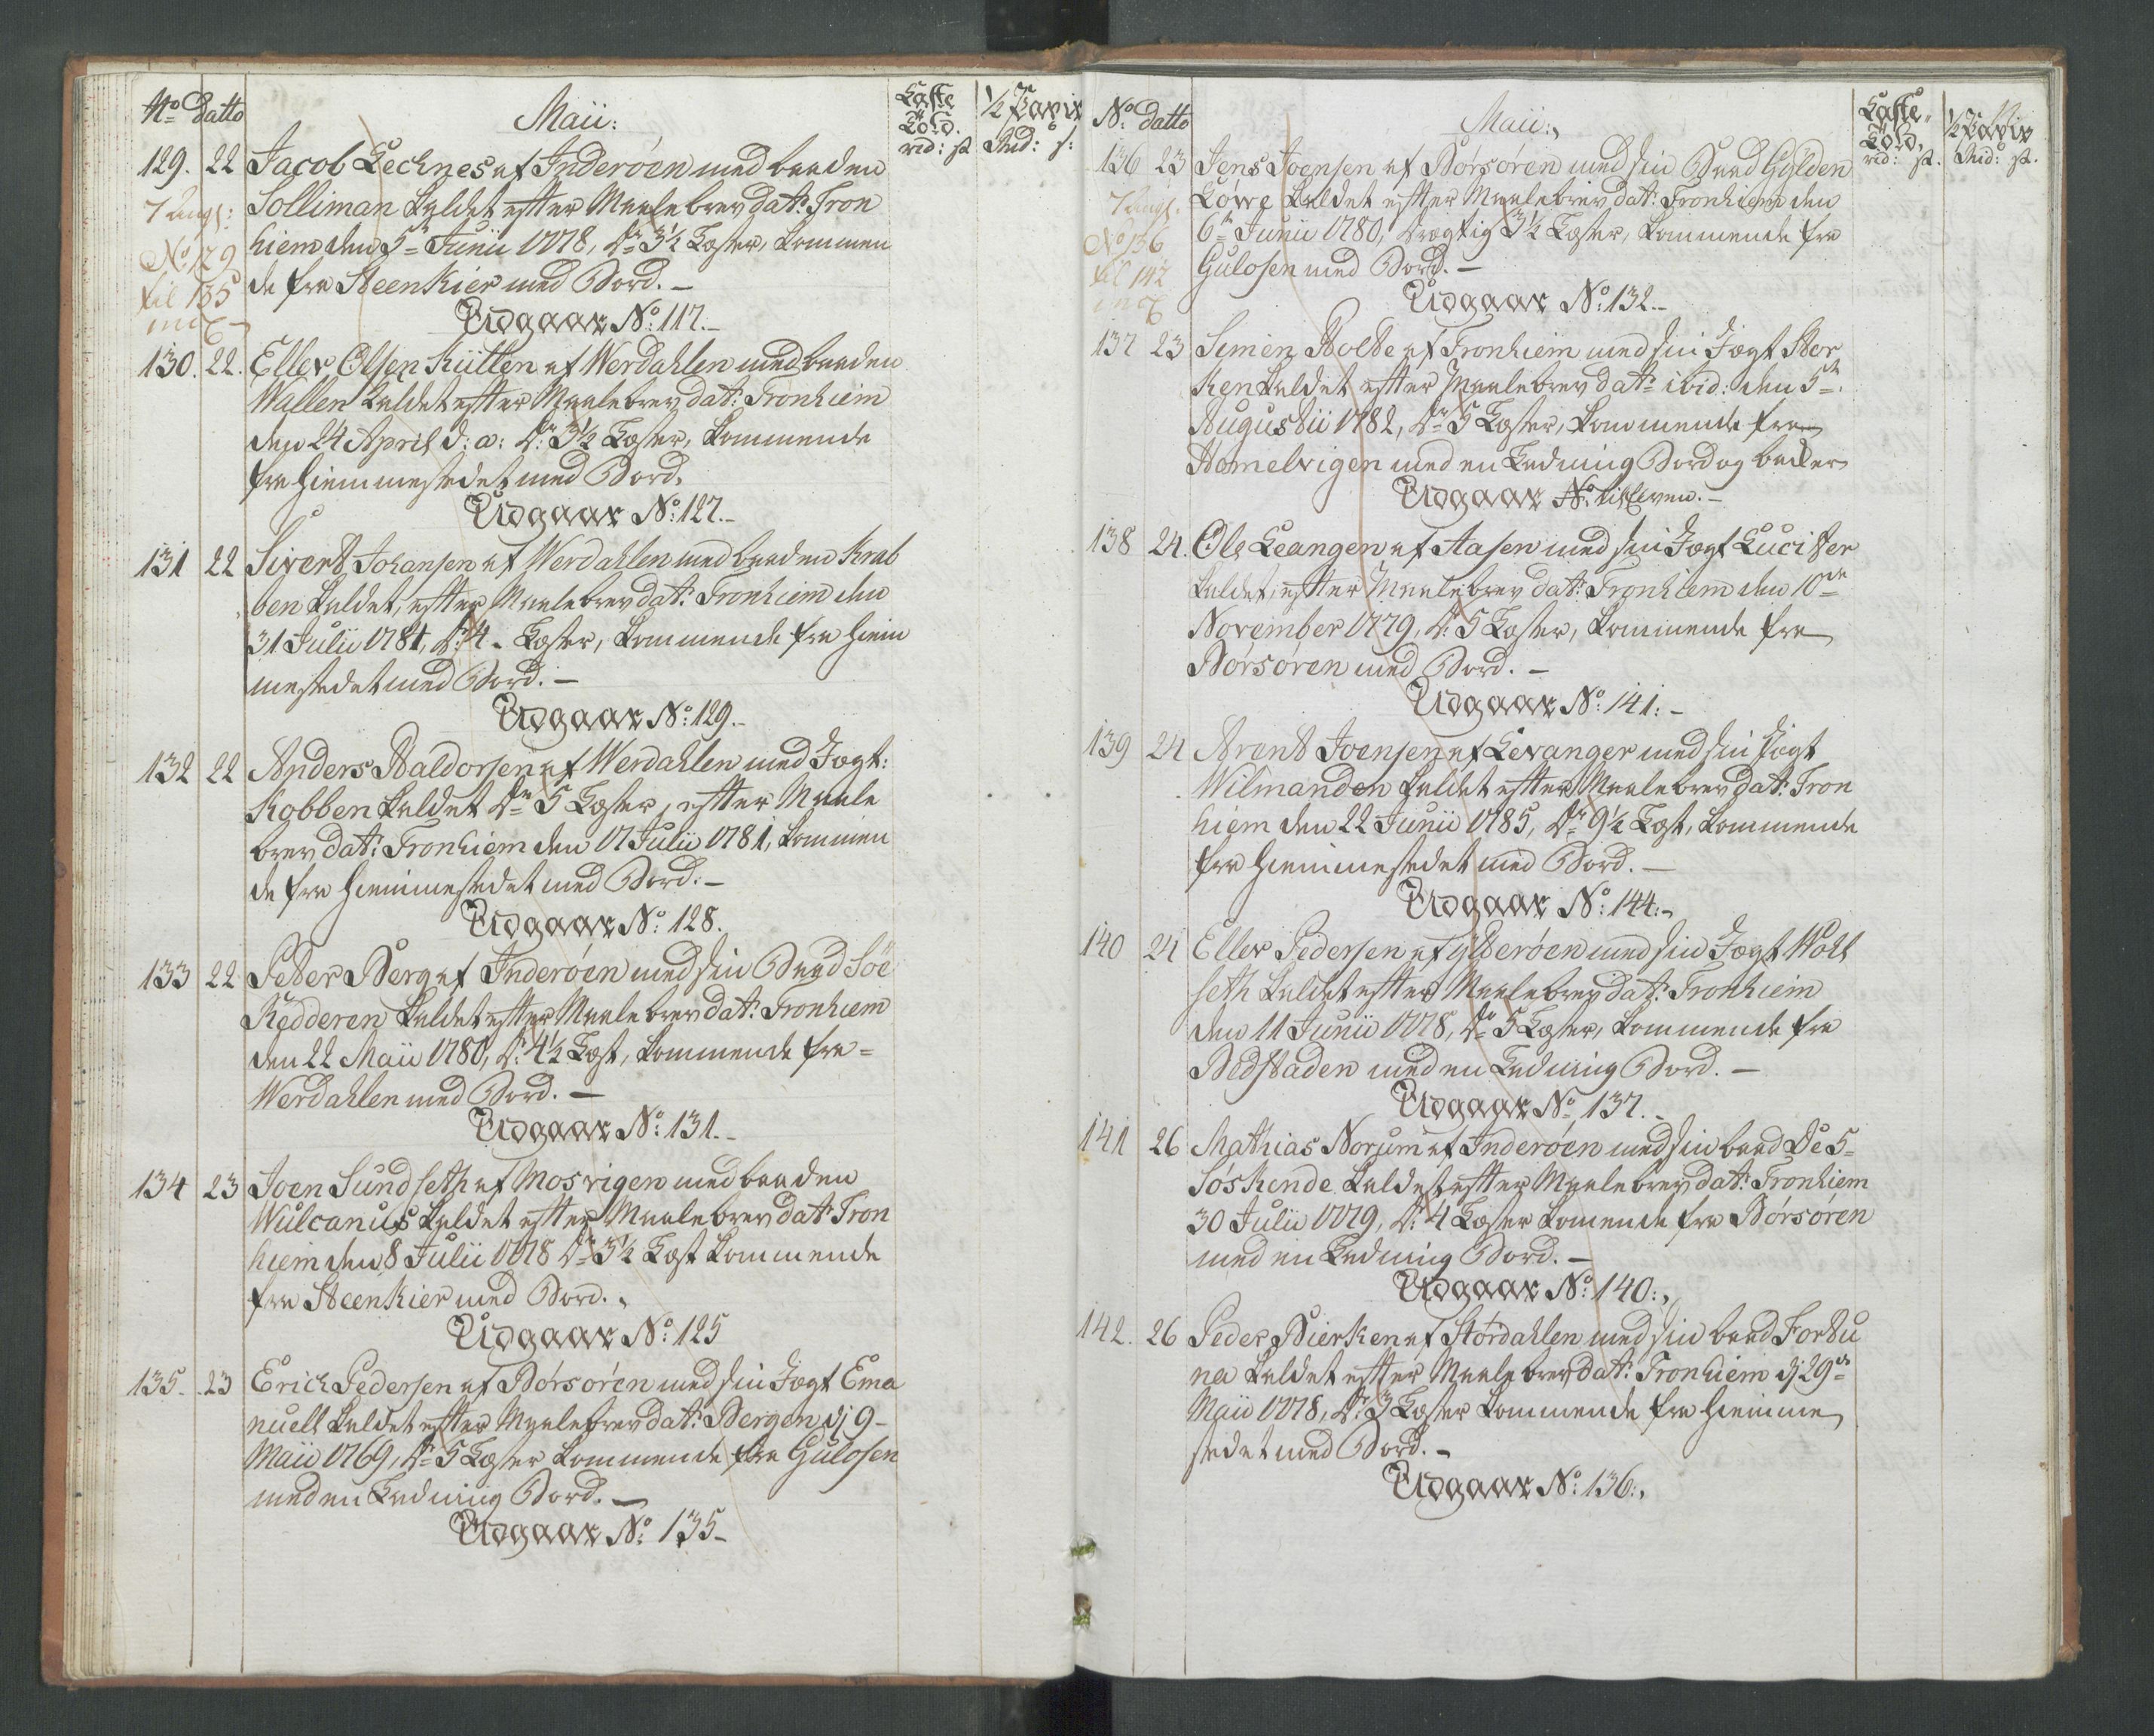 No datto
Maii:
Læste Told.
1/2 Pavir
rid: s.
Rid: s:
129. 22 Jacob Lechnes af Inderøen med baaden
7 angl:
Solliman kaldet efter Maalebrev dat: Tron
No 129
hiem den 5te Junii 1778, dr: 3½ Læster, kommen
til 135
de fra Steenkier med Bord. –
incl:
Udgaar No: 117. –
130. 22. Eller Olsen Kulten af Werdahlen med baaden
Wallen kaldet efter Maalebrev dat: Tronhiem
den 24 April d: a: dr: 3½ Læster, kommende
fra Hiemmestedet med Bord.
Udgaar No: 127. –
131 22 Sivert Johansen af Werdahlen med baaden Krab
ben kaldet, efter Maalebrev dat: Tronhiem den
31 Julii 1784, dr: 4 – Læster, kommende fra Hiem
mestedet med Bord. –
Udgaar No: 129. –
132 22 Anders Haldorsen af Werdahlen med Jagt:
Kobben kaldet dr: 5 Læster, efter Maale
brev dat: Tronhiem den 17 Julii 1781, kommen
de fra Hiemmestedet med Bord. –
Udgaar No: 128.
133 22 Peter Berg af Inderøen med sin Baad Søe
Redderen kaldet efter Maalebrev dat: Tronhiem
den 22 Maii 1780, dr: 4½ Læst, kommende fra =
Werdahlen med Bord. –
Udgaar No: 131. –
134 23 Joen Sundseth af Mosvigen med baaden
Wulcanus kaldet efter Maalebrev dat: Tron
hiem den 8 Julii 1778 dr: 3½ Læst kommende
fra Steenkier med Bord.
Udgaar No: 125
135. 23 Erich Pedersen af Børsøren med sin Jagt Ema
nuell kaldet efter Maalebrev dat: Bergen dj 9 –
Maii 1769, dr: 5 Læster kommende fra Gulosen
med en Ladning Bord. –
Udgaar No: 135 –
No: datto
Maii:
Læste Told.
1/2 Pavir
rid: s.
Rid: s.
136 23 Jens Joensen af Børsøren med sin Baad Gylden
7 angl.
Løwe kaldet efter Maalebrev dat: Tronhiem den
No 136
6te Junii 1780, drægtig 3½ Læster, kommende fra
til 142
Gulosen med Bord. –
incl:
Udgaar No: 132. –
137 23 Simen Holte af Tronhiem med sin Jagt Stor
ken kaldet efter Maalebrev dat: ibid: den 5te
Augustii 1782, dr: 5 Læster, kommende fra
Homelvigen med en Ladning Bord og
Udgaar No:
138 24. Ole Leangen af Aasen med sin Jagt Lucifer
kaldet, efter Maalebrev dat: Tronhiem den 10de
November 1779, dr: 5 Læster, kommende fra
Børsøren med Bord. –
Udgaar No: 141: –
139 24 Arent Joensen af Levanger med sin Jagt
Wilmanden kaldet efter Maalebrev dat: Tron
hiem den 22 Junii 1785, dr: 9½ Læst, kommende
fra Hiemmestedet med Bord. –
Udgaar No: 144: –
140 24 Eller Pedersen af Ytterøen med sin Jagt Wolt
seth kaldet efter Maalebrev dat: Tronhiem
den 11 Junii 1778, dr: 5 Læster, kommende fra
Bedstaden med en Ladning Bord. –
Udgaar No: 137. –
141 26 Mathias Norum af Inderøen med sin baad De 5 –
Søskende kaldet efter Maalebrev dat: Tronhiem
30 Julii 1779, dr: 4 Læster komende fra Børsøren
med en Ladning Bord. –
Udgaar No: 140:
142. 26 Peder Bierken af Størdahlen med sin baad Fortu
na kaldet efter Maalebrev dat: Tronhiem dj 29de
Maii 1778, dr: 3 Læster kommende fra Hiemme
stedet med Bord. –
Udgaar No: 136: